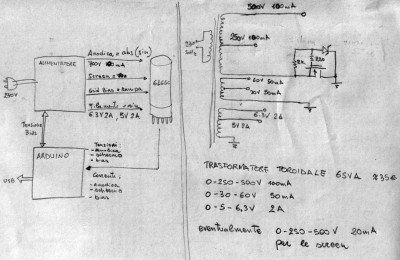 ALIMENTATORE
Anodica
100 mA
Screen
Grid Bias
Filamento
6.3V 2A, 5V 2A
6L6GC
230V
Tensione
Bias
ARDUINO
Tensioni:
- anodica
- schermo
- bias
USB
Corrente:
- anodica
- schermo
- bias
500V 100mA
250V 100mA
60V 50mA
30V 50mA
6.3V 2A
5V 2A
TRASFORMATORE TOROIDALE 65VA
0-250-500V 100mA
0-30-60V 50mA
0-5-6,3V 2A
eventualmente 0-250-500V 20mA
per le screen